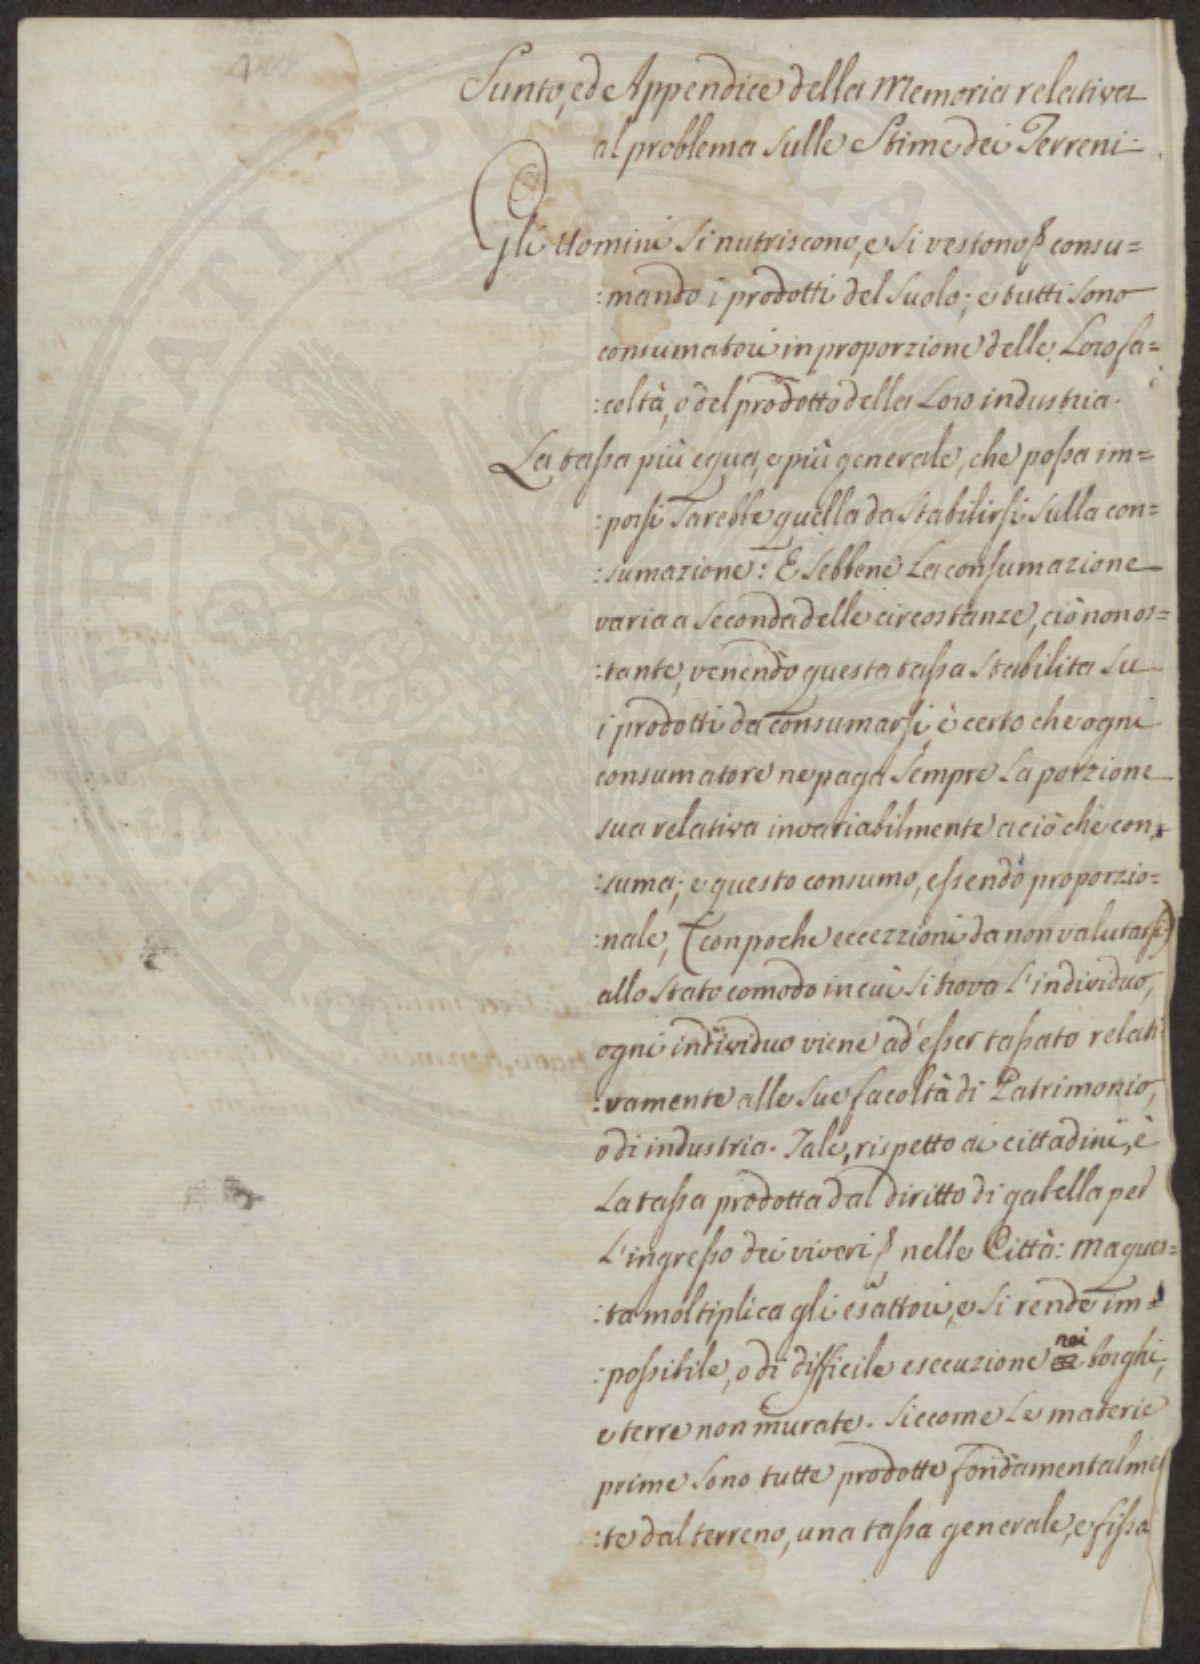 Sunto, ed Appendice della Memoria relativa
al problema sulle Stime dei Terreni:
Gli Uomini si nutriscono, e si vestono consu=
:mando i prodotti del suolo; e tutti sono
consumatori in proporzione delle Loro fa=
:coltà, o del prodotto della Loro industria.
La taſsa più equa, e più generale, che poſsa im=
:porsi sarebbe quella da stabilirsi sulla con=
:sumazione: E sebbene La consumazione
varia a seconda delle circostanze, ciò non os=
:tante, venendo questa taſsa stabilita su
i prodotti da consumarsi, è certo che ogni
consumatore ne paga sempre La porzione
sua relativa invariabilmente a ciò che con=
:suma; e questo consumo, eſsendo proporzio=
:nale, (con poche eccezzioni da non valutarsi)
allo stato comodo in cui si trova L'individuo,
ogni individuo viene ad eſser taſsato relati=
:vamente alle sue facoltà di Patrimonio,
o di industria. Tale, rispetto ai cittadini, è
La taſsa prodotta dal diritto di gabella per
L'ingreſso dei viveri nelle Città: ma ques=
:ta moltiplica gli esattori, e si rende im=
:poſsibile, o di difficile esecuzione nei borghi,
e terre non murate. Siccome Le materie
prime sono tutte prodotte fondamentalme
:te dal terreno, una taſsa generale, e fiſsa
PROSPERITATI PUBLICAE